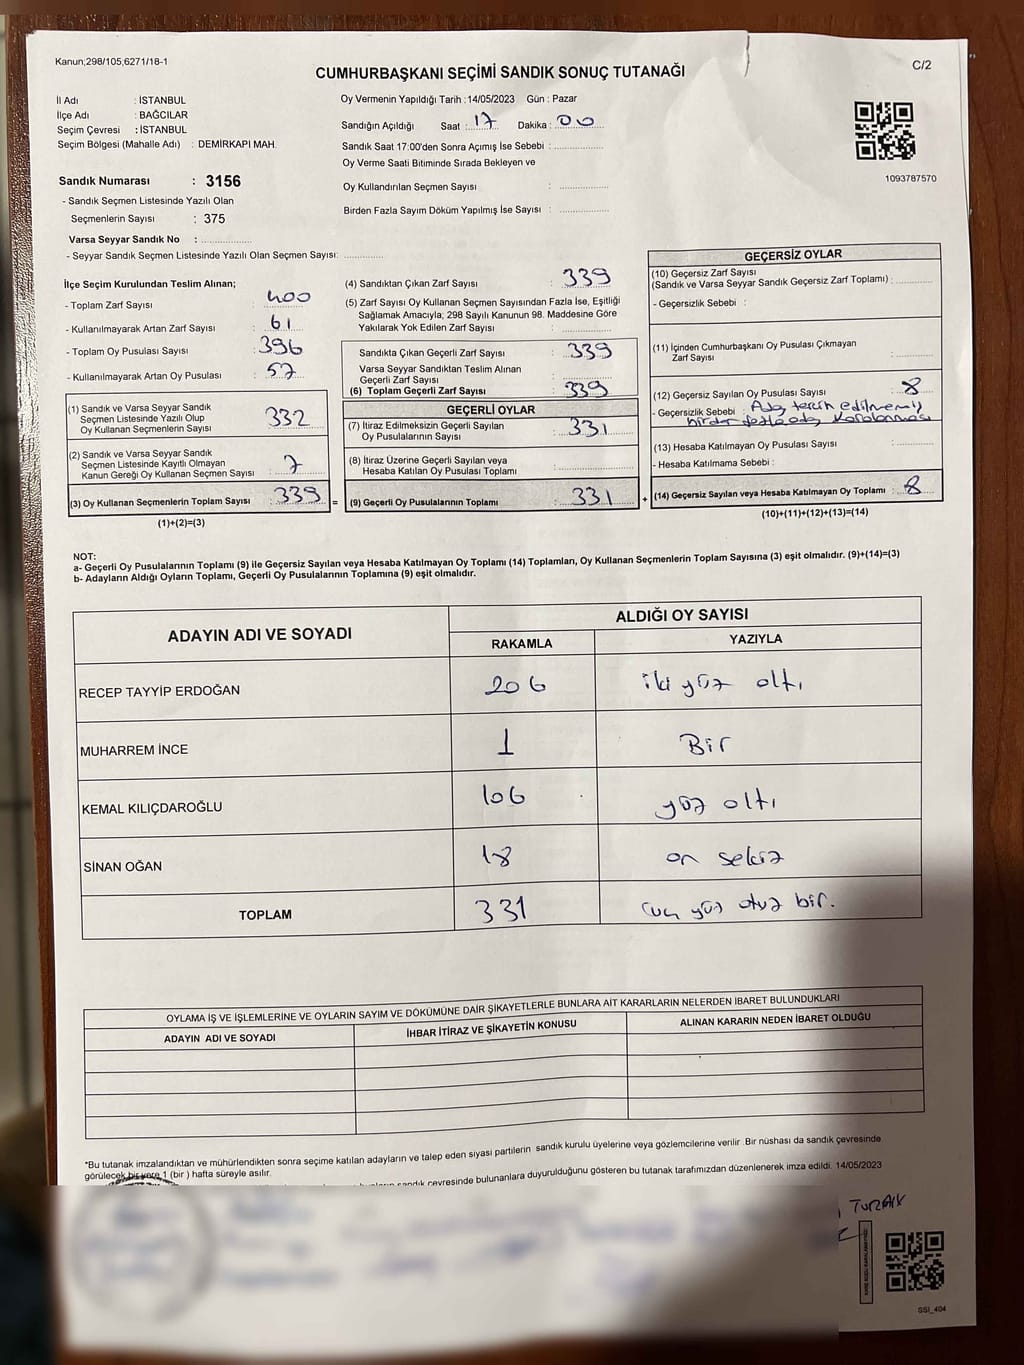 Kanun;298/105,6271/18-1
C/2
CUMHURBAŞKANI SEÇİMİ SANDIK SONUÇ TUTANAĞI
İl Adı : İSTANBUL
İlçe Adı : BAĞCILAR
Seçim Çevresi : İSTANBUL
Seçim Bölgesi (Mahalle Adı) : DEMİRKAPI MAH.
Oy Vermenin Yapıldığı Tarih : 14/05/2023 Gün : Pazar
Sandığın Açıldığı Saat : 17 Dakika : 00
Sandık Saat 17:00'den Sonra Açımış İse Sebebi :
Oy Verme Saati Bitiminde Sırada Bekleyen ve
Oy Kullandırılan Seçmen Sayısı :
Birden Fazla Sayım Döküm Yapılmış İse Sayısı :
1093787570
Sandık Numarası : 3156
- Sandık Seçmen Listesinde Yazılı Olan
Seçmenlerin Sayısı : 375
Varsa Seyyar Sandık No :
- Seyyar Sandık Seçmen Listesinde Yazılı Olan Seçmen Sayısı:
İlçe Seçim Kurulundan Teslim Alınan;
- Toplam Zarf Sayısı : 400
- Kullanılmayarak Artan Zarf Sayısı : 61
- Toplam Oy Pusulası Sayısı : 396
- Kullanılmayarak Artan Oy Pusulası : 57
(1) Sandık ve Varsa Seyyar Sandık
Seçmen Listesinde Yazılı Olup
Oy Kullanan Seçmenlerin Sayısı : 332
(2) Sandık ve Varsa Seyyar Sandık
Seçmen Listesinde Kayıtlı Olmayan
Kanun Gereği Oy Kullanan Seçmen Sayısı : 7
(3) Oy Kullanan Seçmenlerin Toplam Sayısı : 339 =
(1)+(2)=(3)
(4) Sandıktan Çıkan Zarf Sayısı : 339
(5) Zarf Sayısı Oy Kullanan Seçmen Sayısından Fazla İse, Eşitliği
Sağlamak Amacıyla; 298 Sayılı Kanunun 98. Maddesine Göre
Yakılarak Yok Edilen Zarf Sayısı :
Sandıkta Çıkan Geçerli Zarf Sayısı : 339
Varsa Seyyar Sandıktan Teslim Alınan
Geçerli Zarf Sayısı :
(6) Toplam Geçerli Zarf Sayısı : 339
GEÇERLİ OYLAR
(7) İtiraz Edilmeksizin Geçerli Sayılan
Oy Pusulalarının Sayısı : 331
(8) İtiraz Üzerine Geçerli Sayılan veya
Hesaba Katılan Oy Pusulası Toplamı :
(9) Geçerli Oy Pusulalarının Toplamı : 331 +
GEÇERSİZ OYLAR
(10) Geçersiz Zarf Sayısı
(Sandık ve Varsa Seyyar Sandık Geçersiz Zarf Toplamı) :
- Geçersizlik Sebebi :
(11) İçinden Cumhurbaşkanı Oy Pusulası Çıkmayan
Zarf Sayısı :
(12) Geçersiz Sayılan Oy Pusulası Sayısı : 8
- Geçersizlik Sebebi : Aday tercih edilmemiş
birden fazla aday karalanması
(13) Hesaba Katılmayan Oy Pusulası Sayısı :
- Hesaba Katılmama Sebebi :
(14) Geçersiz Sayılan veya Hesaba Katılmayan Oy Toplamı : 8
(10)+(11)+(12)+(13)=(14)
NOT:
a- Geçerli Oy Pusulalarının Toplamı (9) ile Geçersiz Sayılan veya Hesaba Katılmayan Oy Toplamı (14) Toplamları, Oy Kullanan Seçmenlerin Toplam Sayısına (3) eşit olmalıdır. (9)+(14)=(3)
b- Adayların Aldığı Oyların Toplamı, Geçerli Oy Pusulalarının Toplamına (9) eşit olmalıdır.
ADAYIN ADI VE SOYADI
ALDIĞI OY SAYISI
RAKAMLA YAZIYLA
RECEP TAYYİP ERDOĞAN 206 iki yüz altı
MUHARREM İNCE 1 Bir
KEMAL KILIÇDAROĞLU 106 yüz altı
SİNAN OĞAN 18 on sekiz
TOPLAM 331 üç yüz otuz bir.
OYLAMA İŞ VE İŞLEMLERİNE VE OYLARIN SAYIM VE DÖKÜMÜNE DAİR ŞİKAYETLERLE BUNLARA AİT KARARLARIN NELERDEN İBARET BULUNDUKLARI
ADAYIN ADI VE SOYADI İHBAR İTİRAZ VE ŞİKAYETİN KONUSU ALINAN KARARIN NEDEN İBARET OLDUĞU
*Bu tutanak imzalandıktan ve mühürlendikten sonra seçime katılan adayların ve talep eden siyasi partilerin sandık kurulu üyelerine veya gözlemcilerine verilir .Bir nüshası da sandık çevresinde
görülecek bir yere 1 (bir ) hafta süreyle asılır.
sandık çevresinde bulunanlara duyurulduğunu gösteren bu tutanak tarafımızdan düzenlenerek imza edildi. 14/05/2023
SSI_404